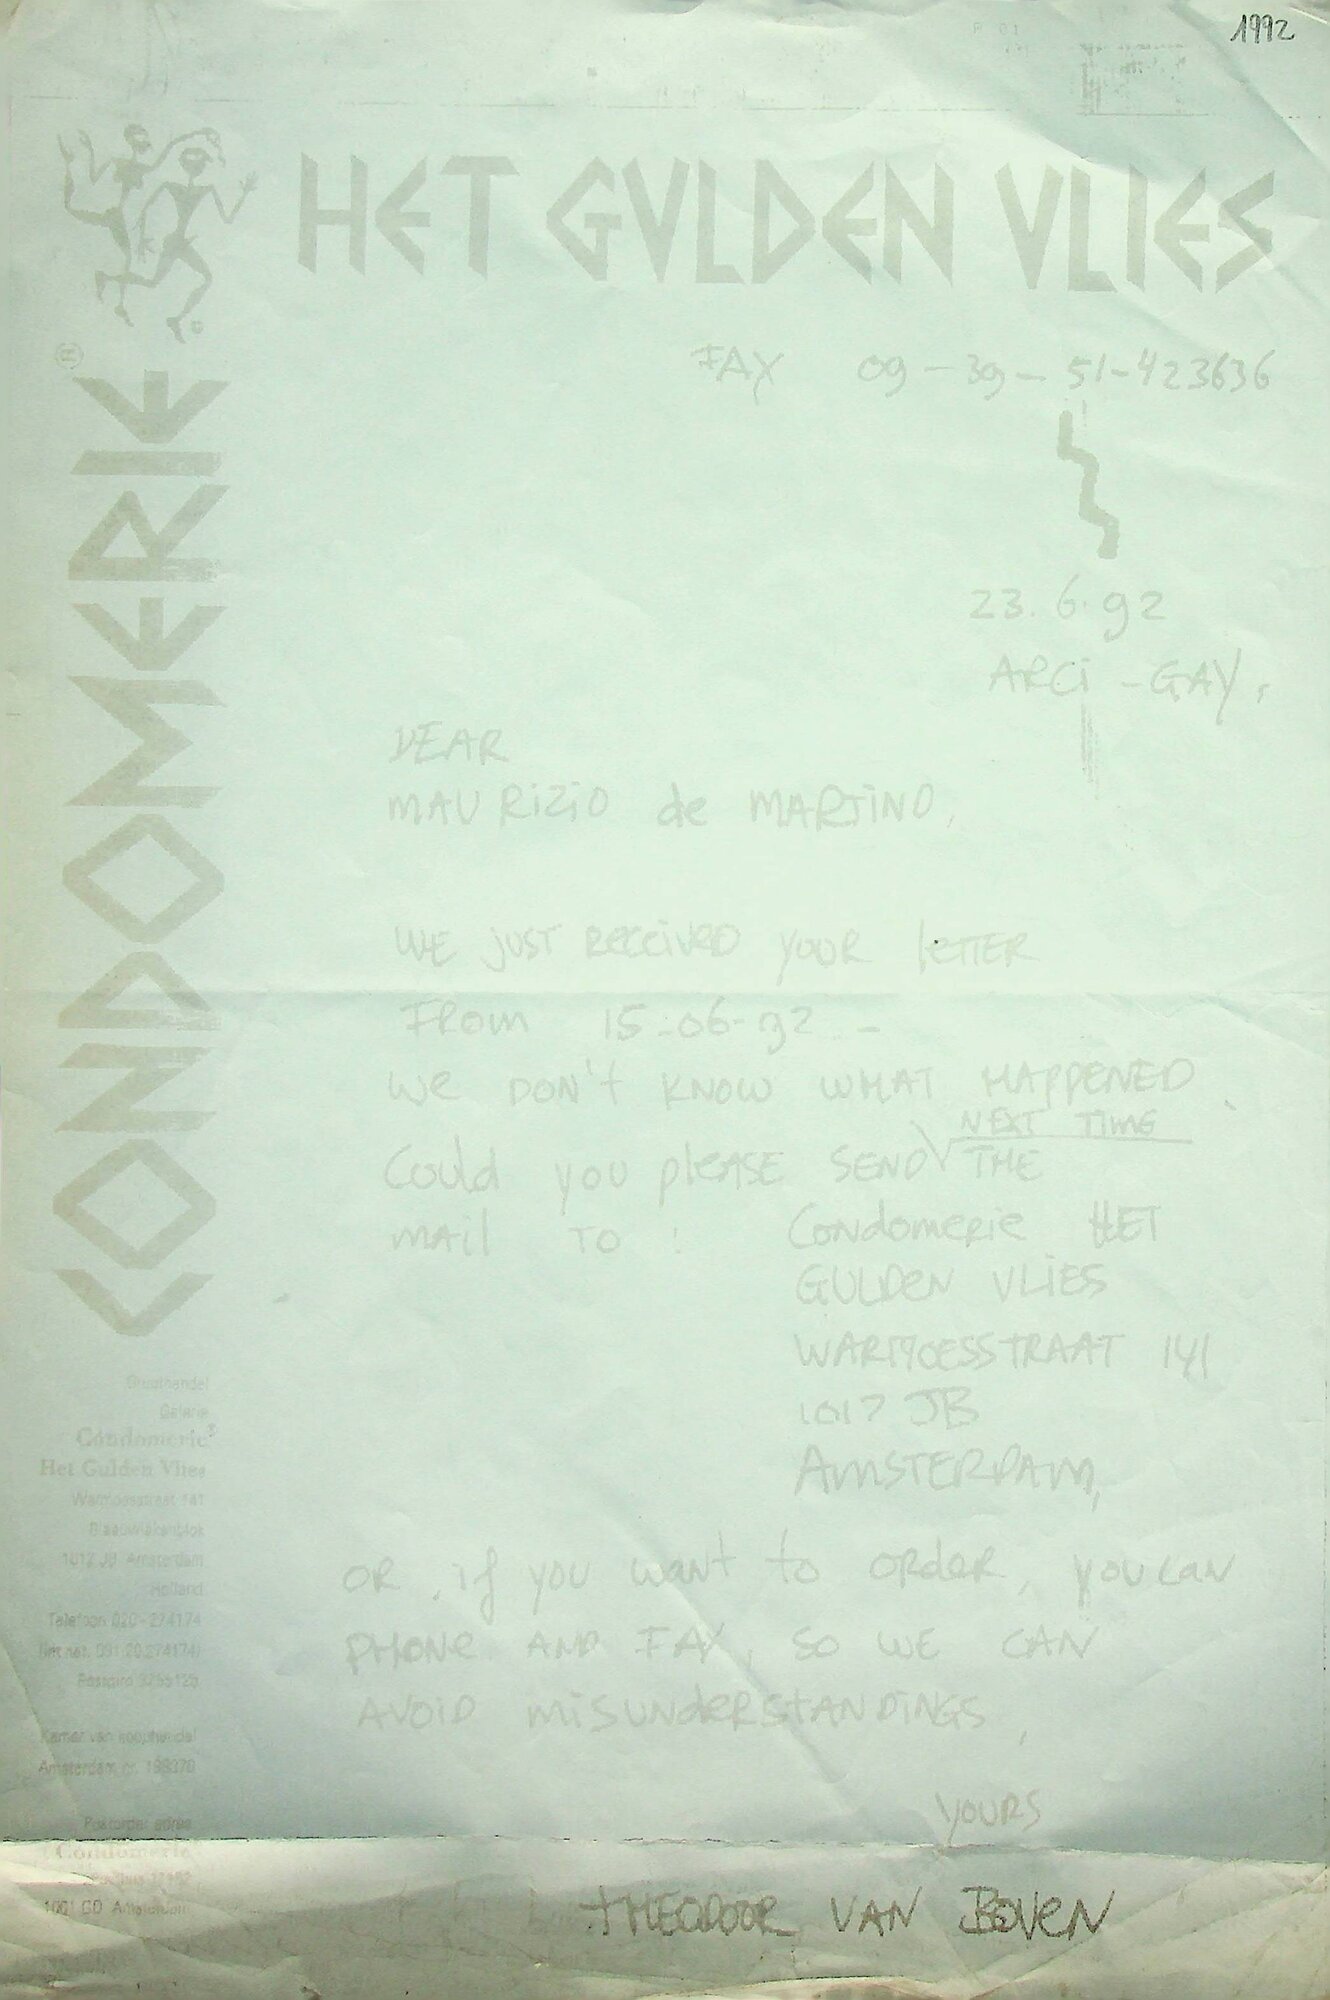 1992
HET GVLDEN VLIES
CONDOMERIE ®
FAX 09-39-51-423636
23.6.92
ARCi-GAY,
DEAR
MAURiZiO de MARTiNO,
WE JUST RECEiVED YOUR LETTER
FROM 15-06-92 -
WE DON't KNOW WHAT HAPPENED
NEXT TIME
Could you please SEND THE
MAil TO : Condomerie HET
GULDEN VLiES
WARMOESSTRAAT 141
1017 JB
AMSTERDAM,
OR, if you want to ORdER, you can
PHONE AND FAX, SO WE CAN
AVOiD misUNdeRStANDiNGS,
YOURS
tHEODOOR VAN BOVEN
Groothandel
Galerie
Condomerie
Het Gulden Vlies
Warmoesstraat 141
Blaauwlakenblok
1012 JB Amsterdam
Holland
Telefoon 020-274174
Postgiro
Kamer van koophandel
Amsterdam nr.
Postorder adres
Condomerie
Amsterdam